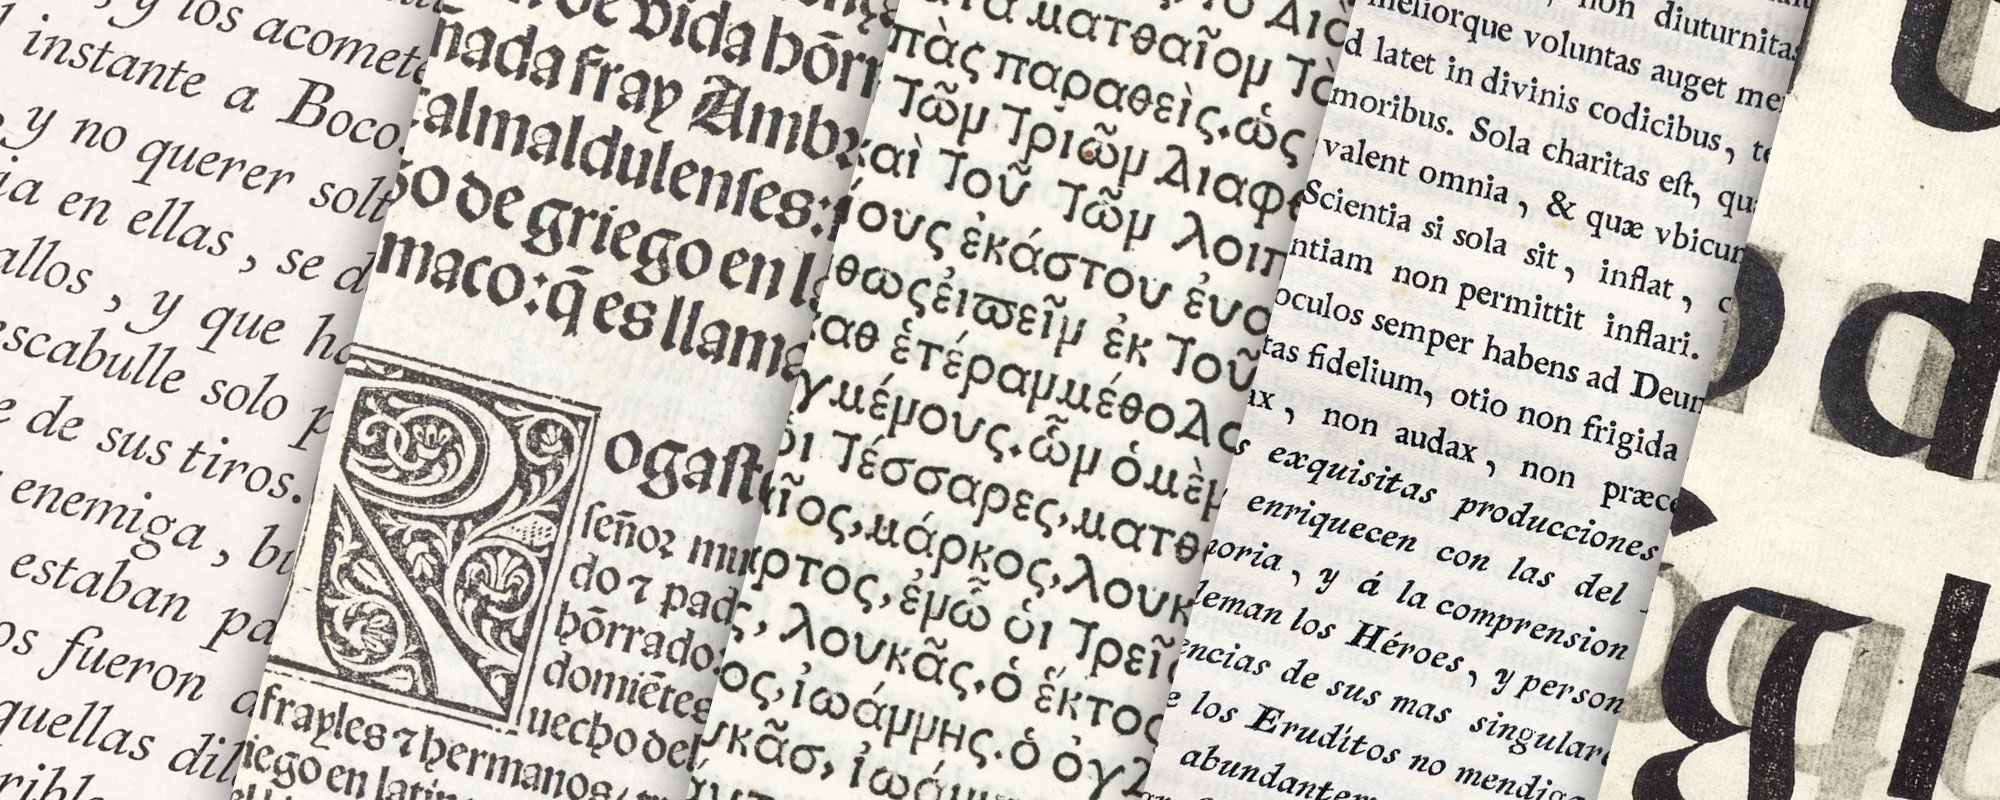 y los acomete
instante a Boco
y no querer solt
ia en ellas, se d
allos, y que ha
escabulle solo p
e de sus tiros.
enemiga, bu
estaban pa
os fueron a
quellas dil
rible
de vida hōrr
ñada fray Ambr
calmaldulenſes:
go de griego en l
maco: q̄ es llama
R
ogaſt
ſeñoꝛ mu
do ⁊ pad
hōrrado
domiētes
uecho del
frayles ⁊ hermanos
iego en latin
ματθαῖομ Τὸ
πὰς παραθεὶς.ὡς
Τῶμ Τριῶμ Διαφ
καὶ Τοῦ Τῶμ λοιπ
ίους ἑκάστου ἐυα
θως ἐιπεῖμ ἐκ Τοῦ
αθ ἑτέραμμέθοδο
γμέμους.ὧμ ὁ μὲμ
οι Τέσσαρες,ματθ
αῖος,μάρκος,λουκ
ρτος,ἐμῶ ὁι Τρεῖς
, λουκᾶς.ὁ ἕκτος
ος,ἰωάμμης.ὁ ὀγδ
υκᾶσ, ἰωάμ
non diuturnitas
meliorque voluntas auget mer
d latet in divinis codicibus, te
moribus. Sola charitas eſt, qu
valent omnia, & quæ vbicun
Scientia si sola sit, inflat, c
ntiam non permittit inflari.
oculos semper habens ad Deum
tas fidelium, otio non frigida
ax, non audax, non præce
s exquisitas producciones
enriquecen con las del
moria, y á la comprension
deman los Héroes, y person
encias de sus mas singulare
e los Eruditos no mendiga
abundantem
d